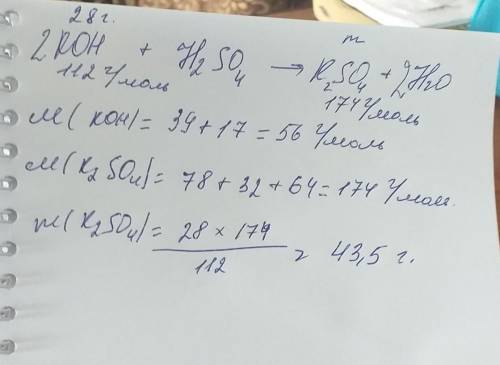 28 г. m
2KOH + H₂SO₄ → K₂SO₄ + 2H₂O
112 г/моль 174 г/моль
M(KOH) = 39 + 17 = 56 г/моль
M(K₂SO₄) = 78 + 32 + 64 = 174 г/моль.
m(K₂SO₄) = 28 × 174 / 112 = 43,5 г.